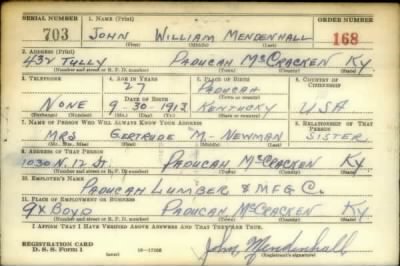 SERIAL NUMBER 1. NAME (Print) ORDER NUMBER
703 JOHN WILLIAM MENDENHALL 168
(First) (Middle) (Last)
2. ADDRESS (Print)
432 TULLY PADUCAH McCRACKEN KY
(Number and street or R. F. D. number) (Town) (County) (State)
3. TELEPHONE 4. AGE IN YEARS 5. PLACE OF BIRTH 6. COUNTRY OF CITIZENSHIP
27 PADUCAH
DATE OF BIRTH (Town or county)
NONE 9-30-1913 KENTUCKY USA
(Mo.) (Day) (Yr.) (State or country)
7. NAME OF PERSON WHO WILL ALWAYS KNOW YOUR ADDRESS 8. RELATIONSHIP OF THAT PERSON
MRS GERTRUDE M- NEWMAN SISTER
(Mr., Mrs., Miss) (First) (Middle) (Last)
9. ADDRESS OF THAT PERSON
1030 N. 12 St. PADUCAH McCRACKEN KY
(Number and street or R. F. D. number) (Town) (County) (State)
10. EMPLOYER'S NAME
PADUCAH LUMBER & MFG C.
11. PLACE OF EMPLOYMENT OR BUSINESS
9X BOYD PADUCAH McCRACKEN KY
(Number and street or R. F. D. number) (Town) (County) (State)
I AFFIRM THAT I HAVE VERIFIED ABOVE ANSWERS AND THAT THEY ARE TRUE.
REGISTRATION CARD
D. S. S. Form 1 John Mendenhall
(Registrant's signature)